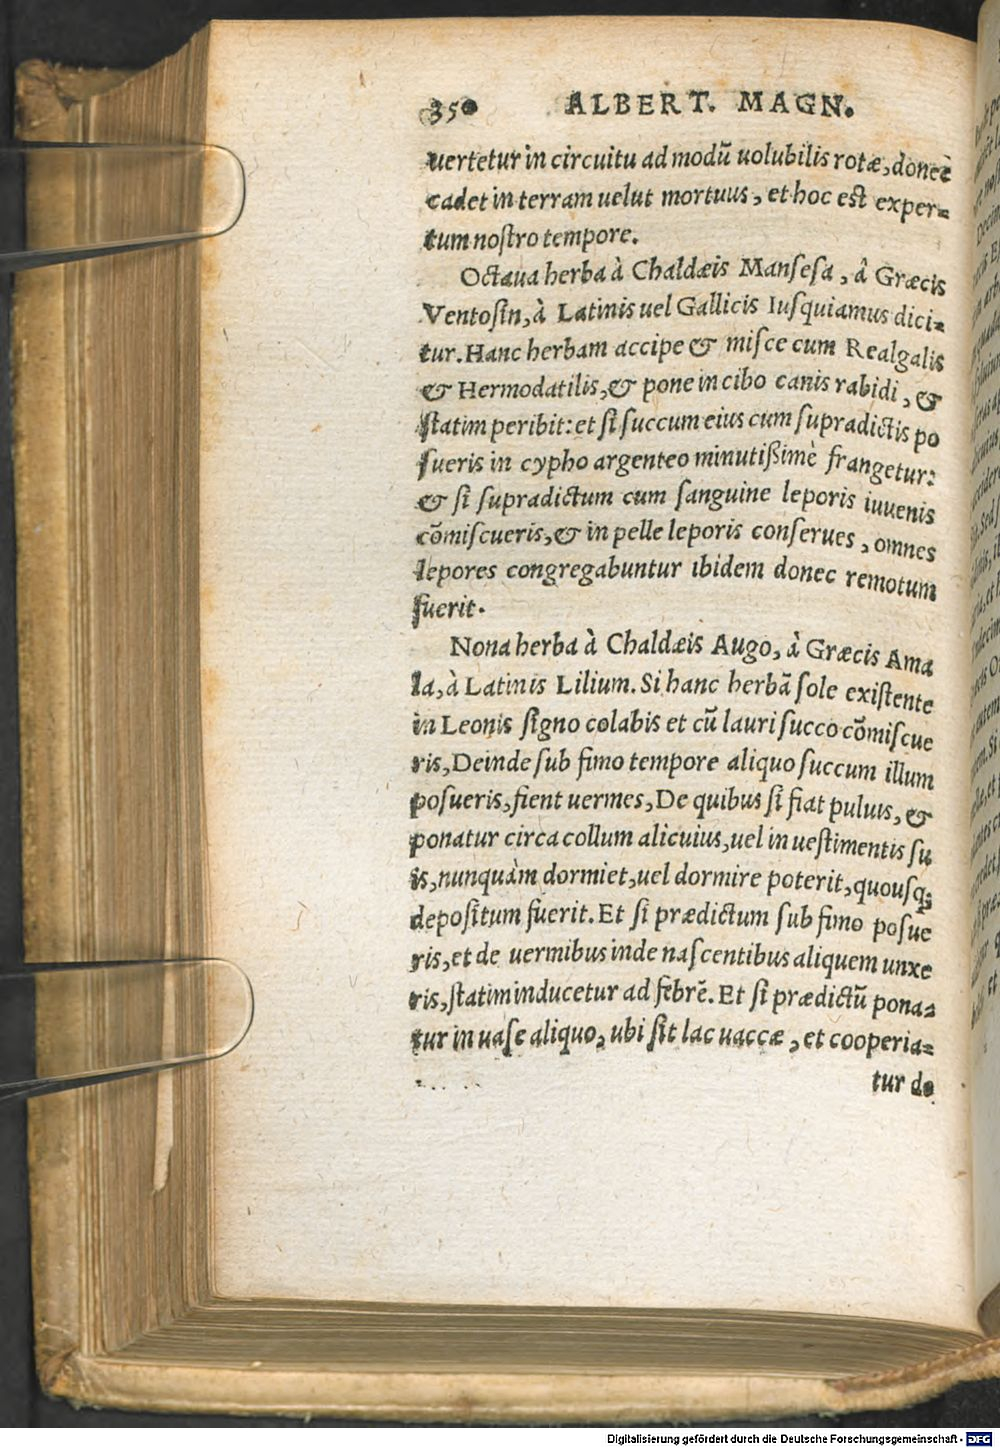 350 ALBERT. MAGN.
uertetur in circuitu ad modū uolubilis rotæ, donec
cadet in terram uelut mortuus, et hoc est exper-
tum noſtro tempore.
Octaua herba à Chaldæis Manſeſa, à Græcis
Ventoſin, à Latinis uel Gallicis Iuſquiamus dici-
tur. Hanc herbam accipe & miſce cum Realgalis
& Hermodatilis, & pone in cibo canis rabidi, &
ſtatim peribit: et ſi ſuccum eius cum ſupradictis po
ſueris in cypho argenteo minutißimè frangetur:
& ſi ſupradictum cum ſanguine leporis iuuenis
cōmiſcueris, & in pelle leporis conſerues, omnes
lepores congregabuntur ibidem donec remotum
fuerit.
Nona herba à Chaldæis Augo, à Græcis Ama
la, à Latinis Lilium. Si hanc herbā ſole exiſtente
in Leonis ſigno colabis et cū lauri ſucco cōmiſcue
ris, Deinde ſub fimo tempore aliquo ſuccum illum
poſueris, fient uermes, De quibus ſi fiat puluis, &
ponatur circa collum alicuius, uel in ueſtimentis ſu
is, nunquàm dormiet, uel dormire poterit, quouſq;
depoſitum fuerit. Et ſi prædictum ſub fimo poſue
ris, et de uermibus inde naſcentibus aliquem unxe
ris, ſtatim inducetur ad febrē. Et ſi prædictū pona-
tur in uaſe aliquo, ubi ſit lac uaccæ, et cooperia-
tur de
Digitalisierung gefördert durch die Deutsche Forschungsgemeinschaft - DFG